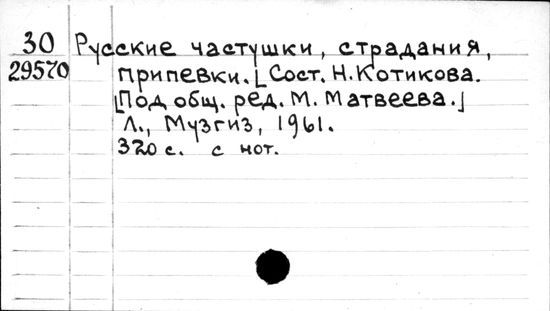 30 Русские частушки, страдания,
29570 припевки. [Сост. Н. Котикова.
[Под общ. ред. М. Матвеева.]
Л., Музгиз, 1961.
320 с. с нот.